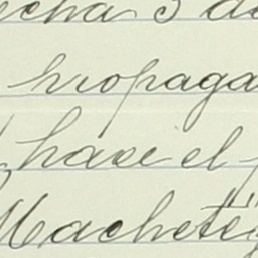 echa 3 de
propaga
hace el
Macheté